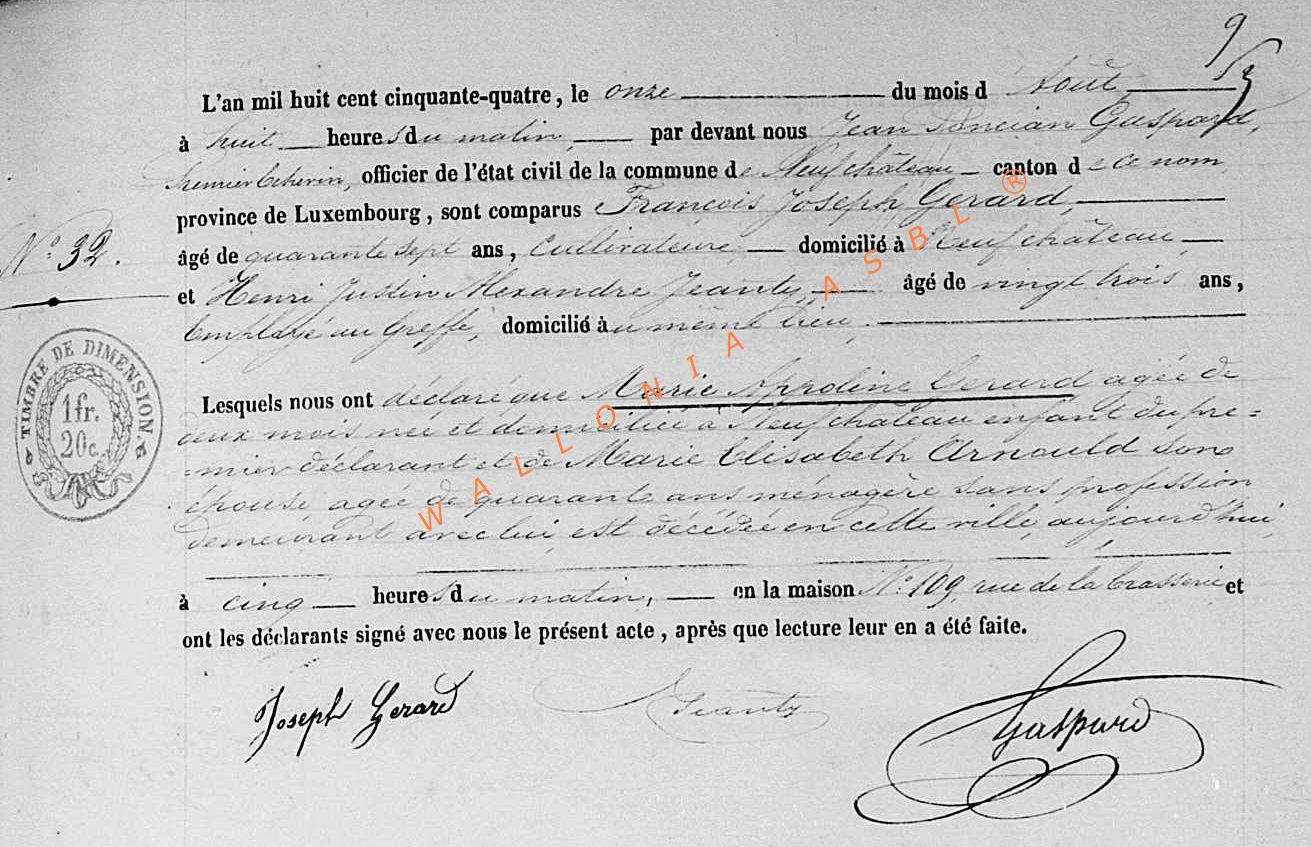 9
L'an mil huit cent cinquante-quatre, le onze du mois d'Août
à huit heures du matin, par devant nous Jean Poncian Gaspard,
premier Echevin, officier de l'état civil de la commune de Neufchâteau canton de ce nom
province de Luxembourg, sont comparus François Joseph Gerard,
N° 32.
âgé de quarante sept ans, Cultivateur, domicilié à Neufchâteau,
et Henri Justin Alexandre Jeanty, âgé de vingt trois ans,
Employé au Greffe, domicilié au même lieu.
TIMBRE DE DIMENSION.
1 fr.
20 c.
Lesquels nous ont déclaré que Marie Appoline Gerard agée de
deux mois née et domiciliée à Neufchâteau enfant du pre=
=mier déclarant et de Marie Elisabeth Arnould son
épouse agée de quarante ans ménagère sans profession
demeurant avec lui, est décédée en cette ville, aujourd'hui,
à cinq heures du matin, en la maison N° 109 rue de la brasserie et
ont les déclarants signé avec nous le présent acte, après que lecture leur en a été faite.
Joseph Gerard
Jeanty
Gaspard
WALLONIA ASBL ®